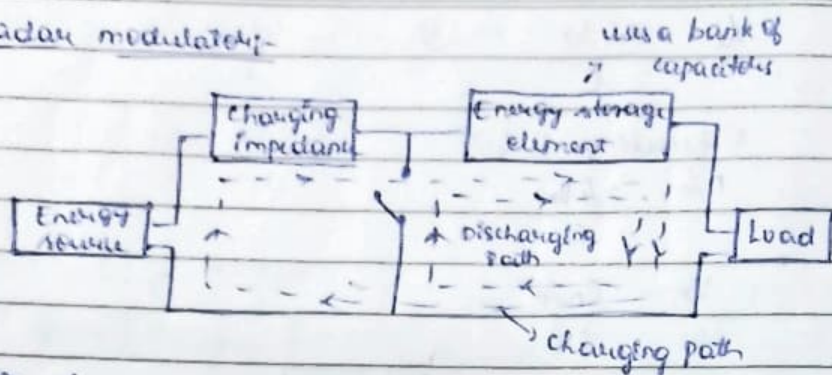 adar modulator:-
uses a bank of
capacitors
Charging
impedance
Energy storage
element
Energy
source
Discharging
Path
Load
charging path